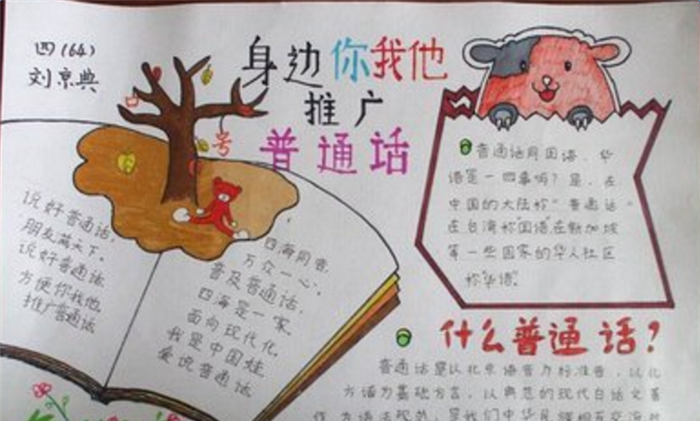 四(64)
刘京典
身边你我他
推广
普通话
说好普通话,
朋友满天下。
说好普通话
方便你我他
推广普通话
四海同音
万众一心。
普及普通话,
四海是一家。
面向现代化,
我是中国娃
爱说普通话
普通话同国语、华
语是一回事吗?是,在
中国的大陆称"普通话"
在台湾称"国语"在新加坡
等一些国家的华人社区
称"华语"
什么普通话?
普通话是以北京语音为标准音,以北
方话为基础方言,以典范的现代白话文著
作为语法规范,是我们中华民族相互交流